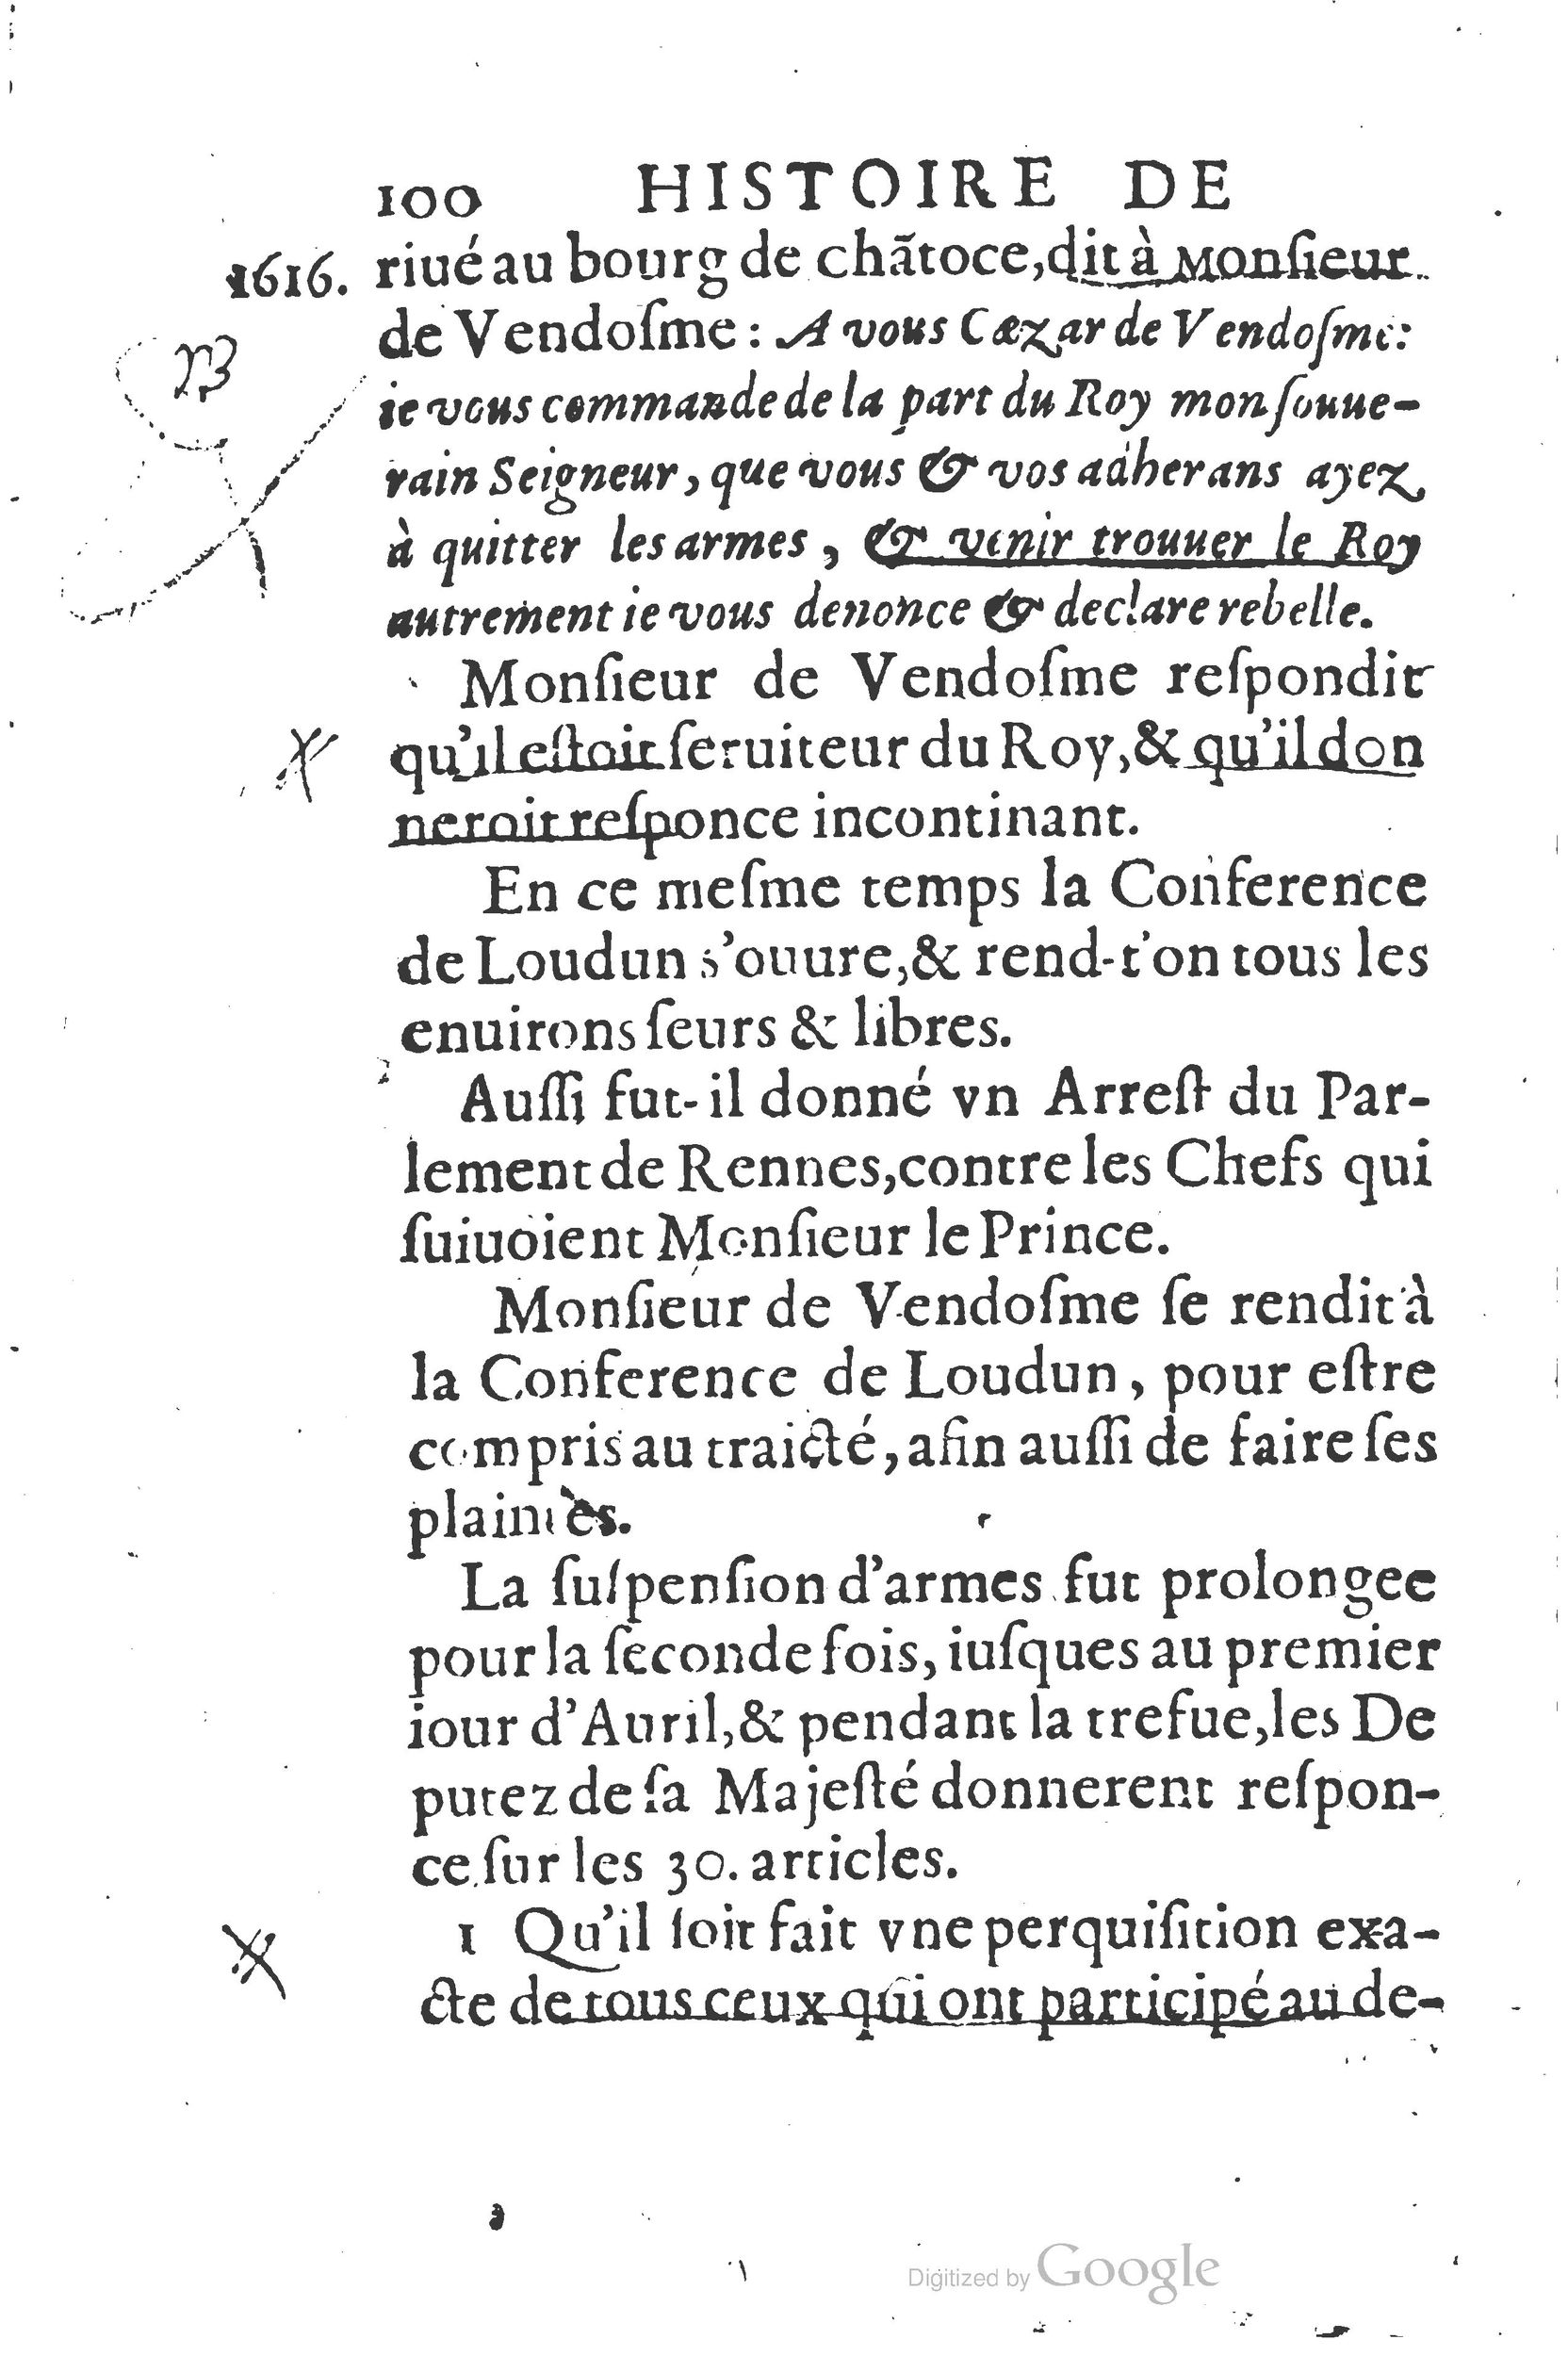 100 HISTOIRE DE
1616. riué au bourg de chãtoce, dit à Monſieur
de Vendoſme: A vous Cæzar de Vendoſme:
ie vous commande de la part du Roy mon ſouue-
rain Seigneur, que vous & vos adherans ayez
à quitter les armes, & venir trouuer le Roy
autrement ie vous denonce & declare rebelle.
Monſieur de Vendoſme reſpondit
qu'il eſtoit ſeruiteur du Roy, & qu'il don
neroit reſponce incontinant.
En ce meſme temps la Conference
de Loudun s'ouure, & rend-t'on tous les
enuirons ſeurs & libres.
Auſſi fut-il donné vn Arreſt du Par-
lement de Rennes, contre les Chefs qui
ſuiuoient Monſieur le Prince.
Monſieur de Vendoſme ſe rendit à
la Conference de Loudun, pour eſtre
compris au traicté, afin auſſi de faire ſes
plaintes.
La ſuſpenſion d'armes fut prolongee
pour la ſeconde fois, iuſques au premier
iour d'Auril, & pendant la trefue, les De
putez de ſa Majeſté donnerent reſpon-
ce ſur les 30. articles.
1 Qu'il ſoit fait vne perquiſition exa-
cte de tous ceux qui ont participé au de-
Digitized by Google